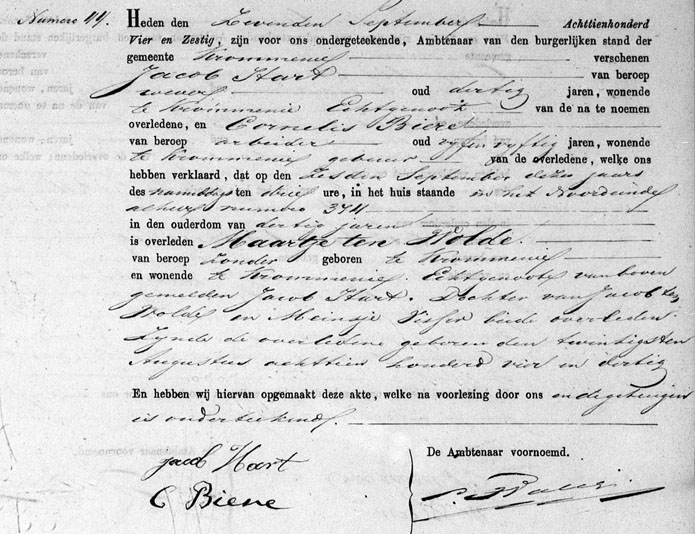 Numero 44. Heden den Zevenden September Achttienhonderd
Vier en Zestig, zijn voor ons ondergeteekende, Ambtenaar van den burgerlijken stand der
gemeente Krommenie verschenen
Jacob Hart van beroep
wever oud dertig jaren, wonende
te Krommenie Echtgenoot van de na te noemen
overledene, en Cornelis Biene
van beroep arbeider oud vyfen vyftig jaren, wonende
te Krommenie gebuur van de overledene, welke ons
hebben verklaard, dat op den Zesden September dezes jaars
des namiddags ten drie ure, in het huis staande in het Noordeinde
numero 374
in den ouderdom van dertig jaren
is overleden Maartje ten Wolde.
van beroep Zonder geboren te Krommenie
en wonende te Krommenie. Echtgenoote van boven
gemelden Jacob Hart. Dochter van Jacob ten
Wolde en Meinsje Visser beide overleden.
Zynde de overledene geboren den twintigsten
Augustus achttien honderd vier en dertig
En hebben wij hiervan opgemaakt deze akte, welke na voorlezing door ons en degetuigen
is onderteekend.
Jacob Hart
C Biene
De Ambtenaar voornoemd.